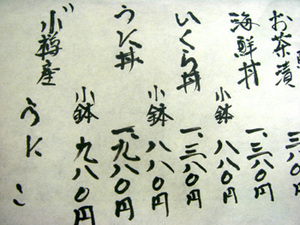 お茶漬
三八〇円
海鮮丼
一、三八〇円
小鉢
八八〇円
いくら丼
一、三八〇円
小鉢
八八〇円
うに丼
一、九八〇円
小鉢
九八〇円
小樽産
うに